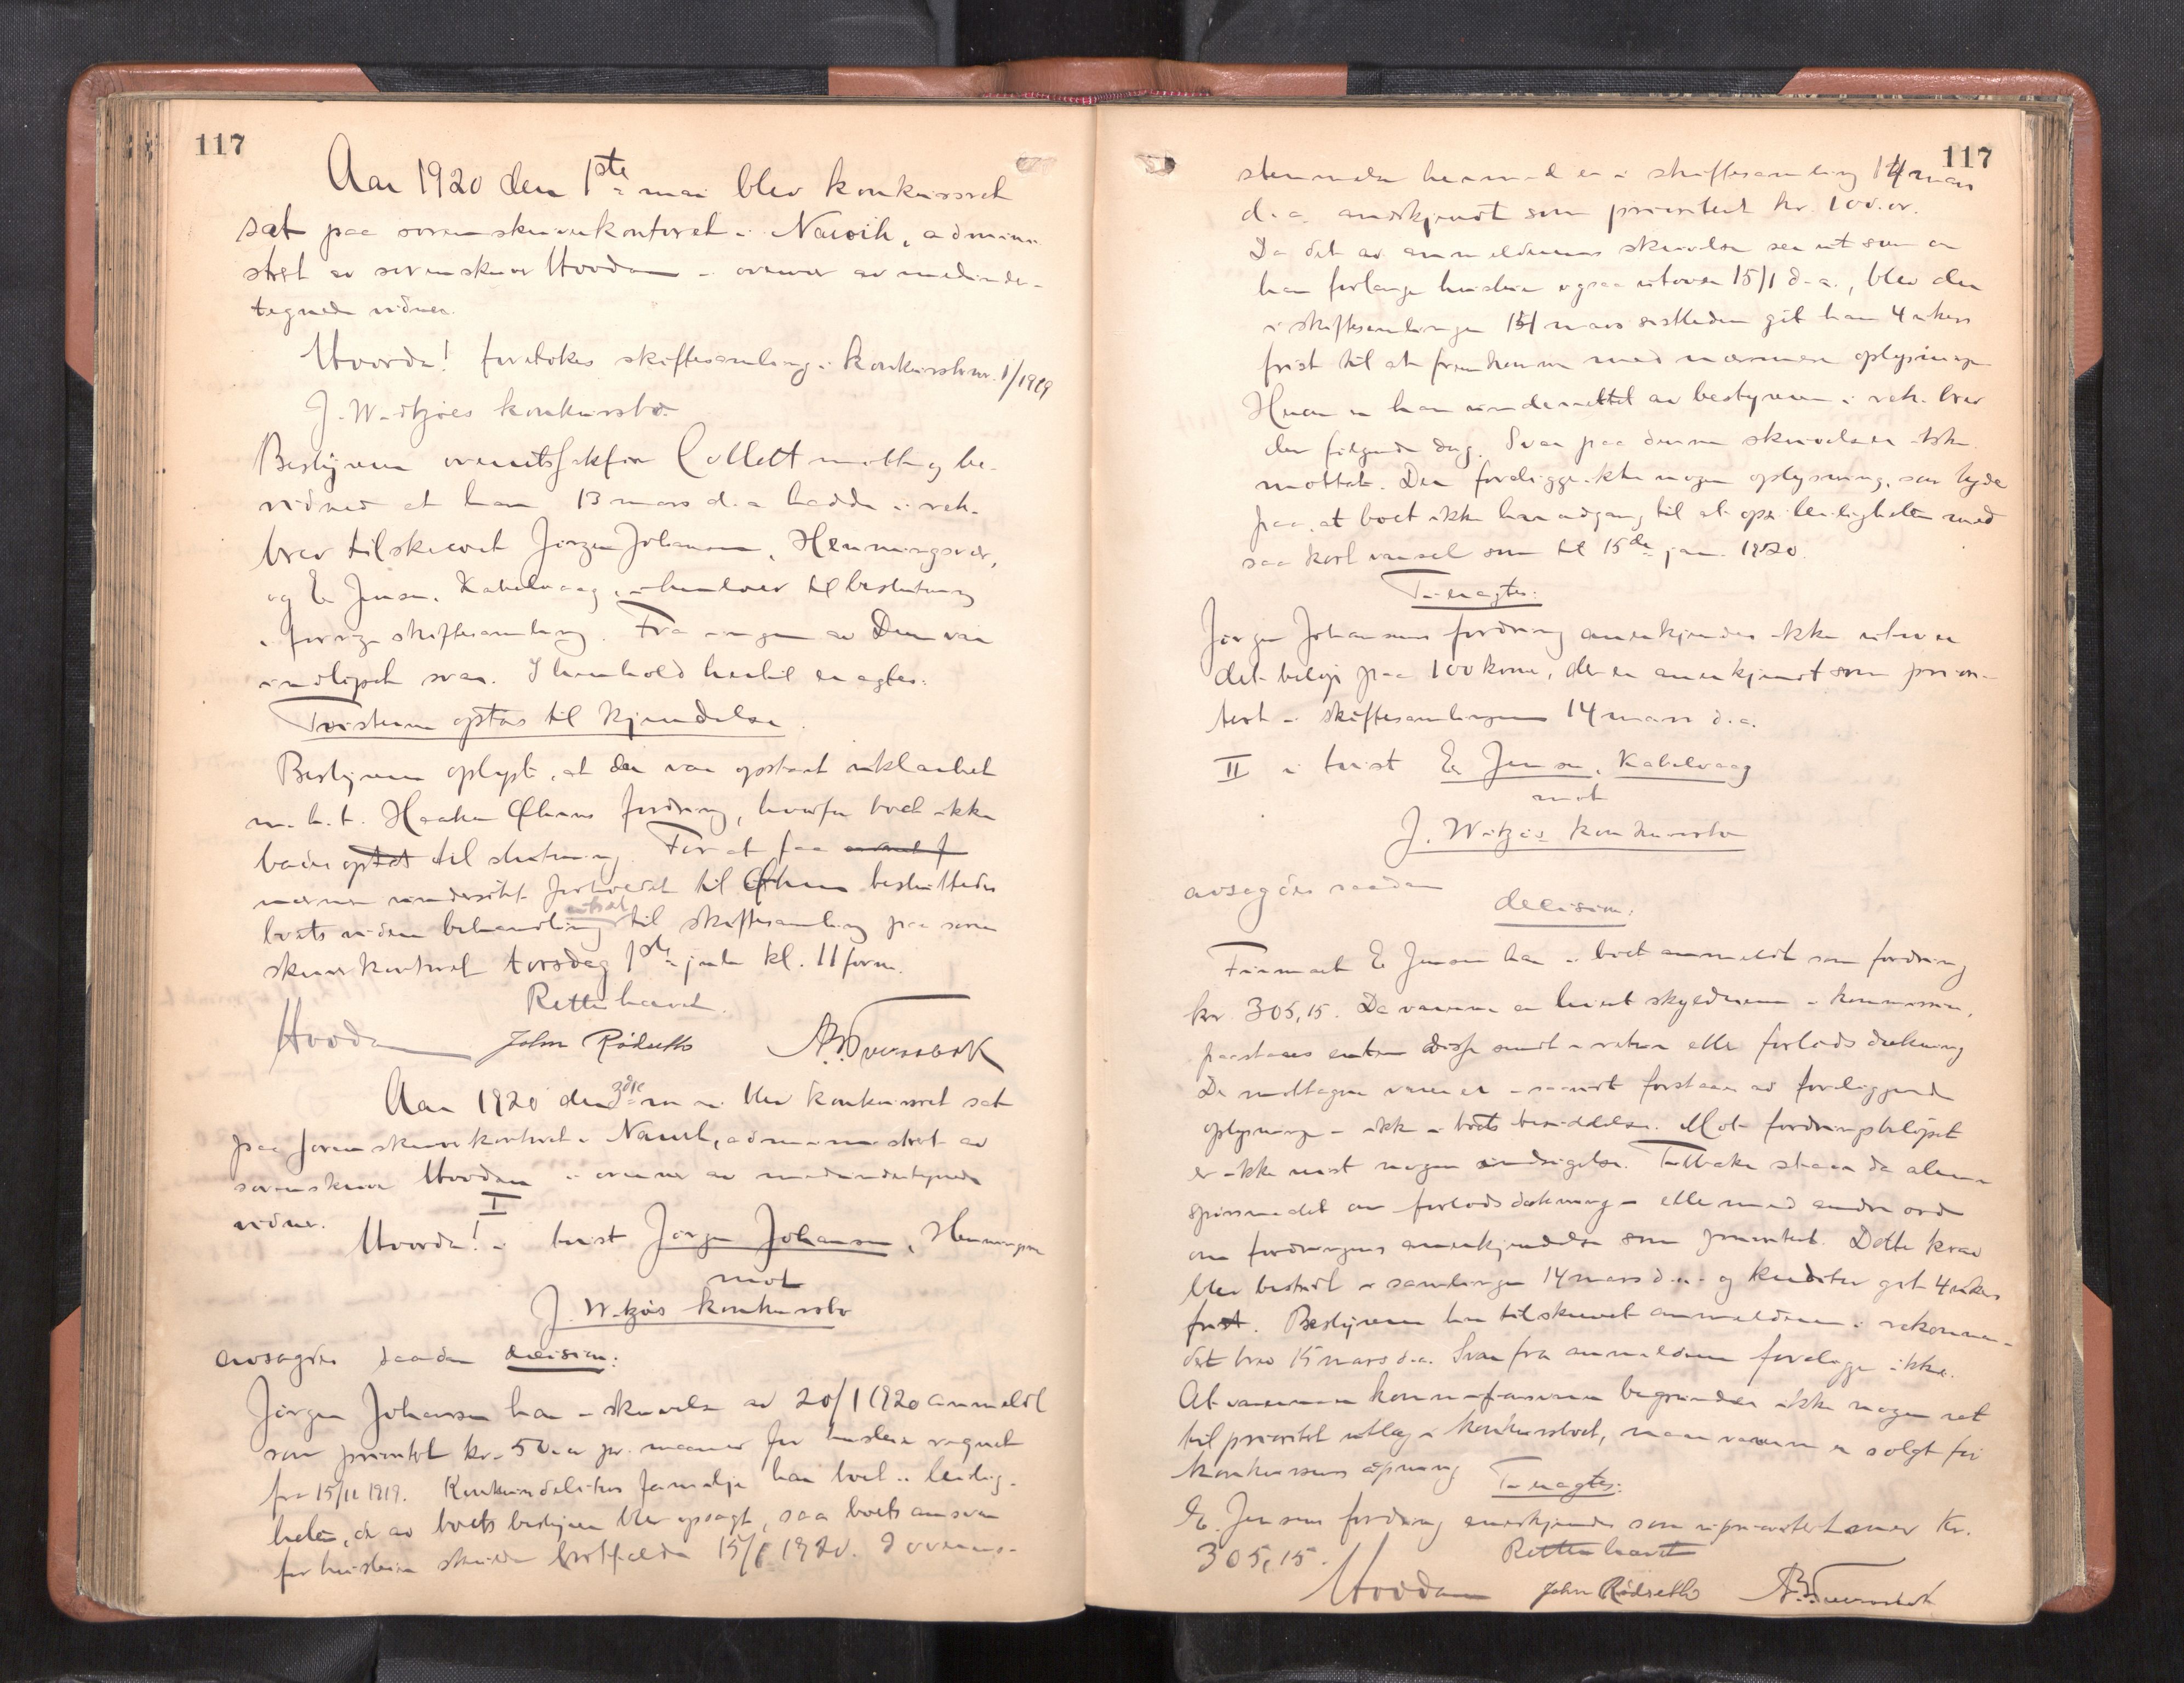 117
Aar 1920 den 1ste mai blev konkursret
sat paa sorenskriverkontoret i Narvik, admini-
stret av sorenskriver Hovdan i overvær av medunder-
tegnede vidner.
Hvorda! foretokes skiftesamling i konkursbo nr. 1/1919
J. Witzøes konkursbo.
Bestyreren overretssakfør Collett møtte og be-
vidned at han 13 mars d.a. hadde i rek.
brev tilskrevet Jørgen Johansen, Henningsvær,
og E. Jensen, Kabelvaag, i henhold til beslutning
i forrige skiftesamling. Fra ingen av dem var
indløpet svar. I henhold hertil eragtes:
Tvistene optas til kjendelse.
Bestyreren oplyste, at der var opstaat uklarhet
m.h.t. Haakon Øhrns fordring, hvorfor boet ikke
burde optat til slutning. For at faa
nærmere undersøkt forholdet til Øhrn besluttedes
boets videre behandling utsat til skiftesamling paa soren
skriverkontoret torsdag 1ste juli kl. 11 form.
Retten hævet.
Hovdan John Rödseth
Aar 1920 den 3dje mai blev konkursret sat
paa sorenskriverkontoret i Narvik, administret av
sorenskriver Hovdan i overvær av medundertegnede
vidner.
I
Hvorda! i tvist Jørgen Johansen, Henningsvær
mot
J. Witzøes konkursbo
avsagdes saadan decision:
Jørgen Johansen har i skrivelse av 20/1 1920 anmeldt
som prioritet kr. 50.- pr. maaned for husleie regnet
fra 15/11 1919. Konkursdebitors familje har bodd i leilig-
heten, der av boets bestyrer blev opsagt, saa boets ansvar
for husleien skulde bortfalde 15/1 1920. I overens-
117
stemmelse hermed er i skiftesamling 14 mars
d.a. anerkjendt som prioritert kr. 100.-
Da det av anmelderens skrivelse ser ut som om
han forlanger husleie ogsaa utover 15/1 d.a., blev der
i skiftesamlingen 14 mars sistleden git ham 4 ukers
frist til at fremkomme med nærmere oplysninger
Herom er han underrettet av bestyreren i rek. brev
den følgende dag. Svar paa denne skrivelse er ikke
mottat. Der foreligger ikke nogen oplysning, som tyder
paa, at boet ikke har adgang til at opsi leiligheten med
saa kort varsel som til 15de jan. 1920.
Ti eragtes:
Jørgen Johansens fordring anerkjendes ikke utover
det beløp paa 100 kroner, der er anerkjendt som priori-
tert i skiftesamlingen 14 mars d.a.
II i tvist E. Jensen, Kabelvaag
mot
J. Witzøes konkursbo
avsagdes saadan
decision:
Firmaet E. Jensen har i boet anmeldt som fordring
kr. 305,15. Da varerne er levert skyldneren i kommission,
paastaaes enten disse sendt i retur eller forlods dækning
De mottagne varer er - saavidt forstaaes av foreliggende
oplysninger - ikke i boets besiddelse. Mot fordringsbeløpet
er ikke reist nogen indsigelse. Tilbake staar da alene
spørsmaalet om forlods dækning - eller med andre ord
om fordringens anerkjendelse som prioritert. Dette krav
blev bestridt i samlingen 14 mars d.a. og kreditor git 4 ukers
frist. Bestyreren har tilskrevet anmelderen i rekomman-
dert brev 15 mars d.a. Svar fra anmelderen foreligger ikke.
At varerne er kommissionsvarer begrunder ikke nogen ret
til prioritet utlæg i konkursboet, naar varerne er solgt før
konkursens aapning
Ti eragtes:
E. Jensens fordring anerkjendes som uprioritert med kr.
305,15.
Retten hævet
Hovdan John Rödseth